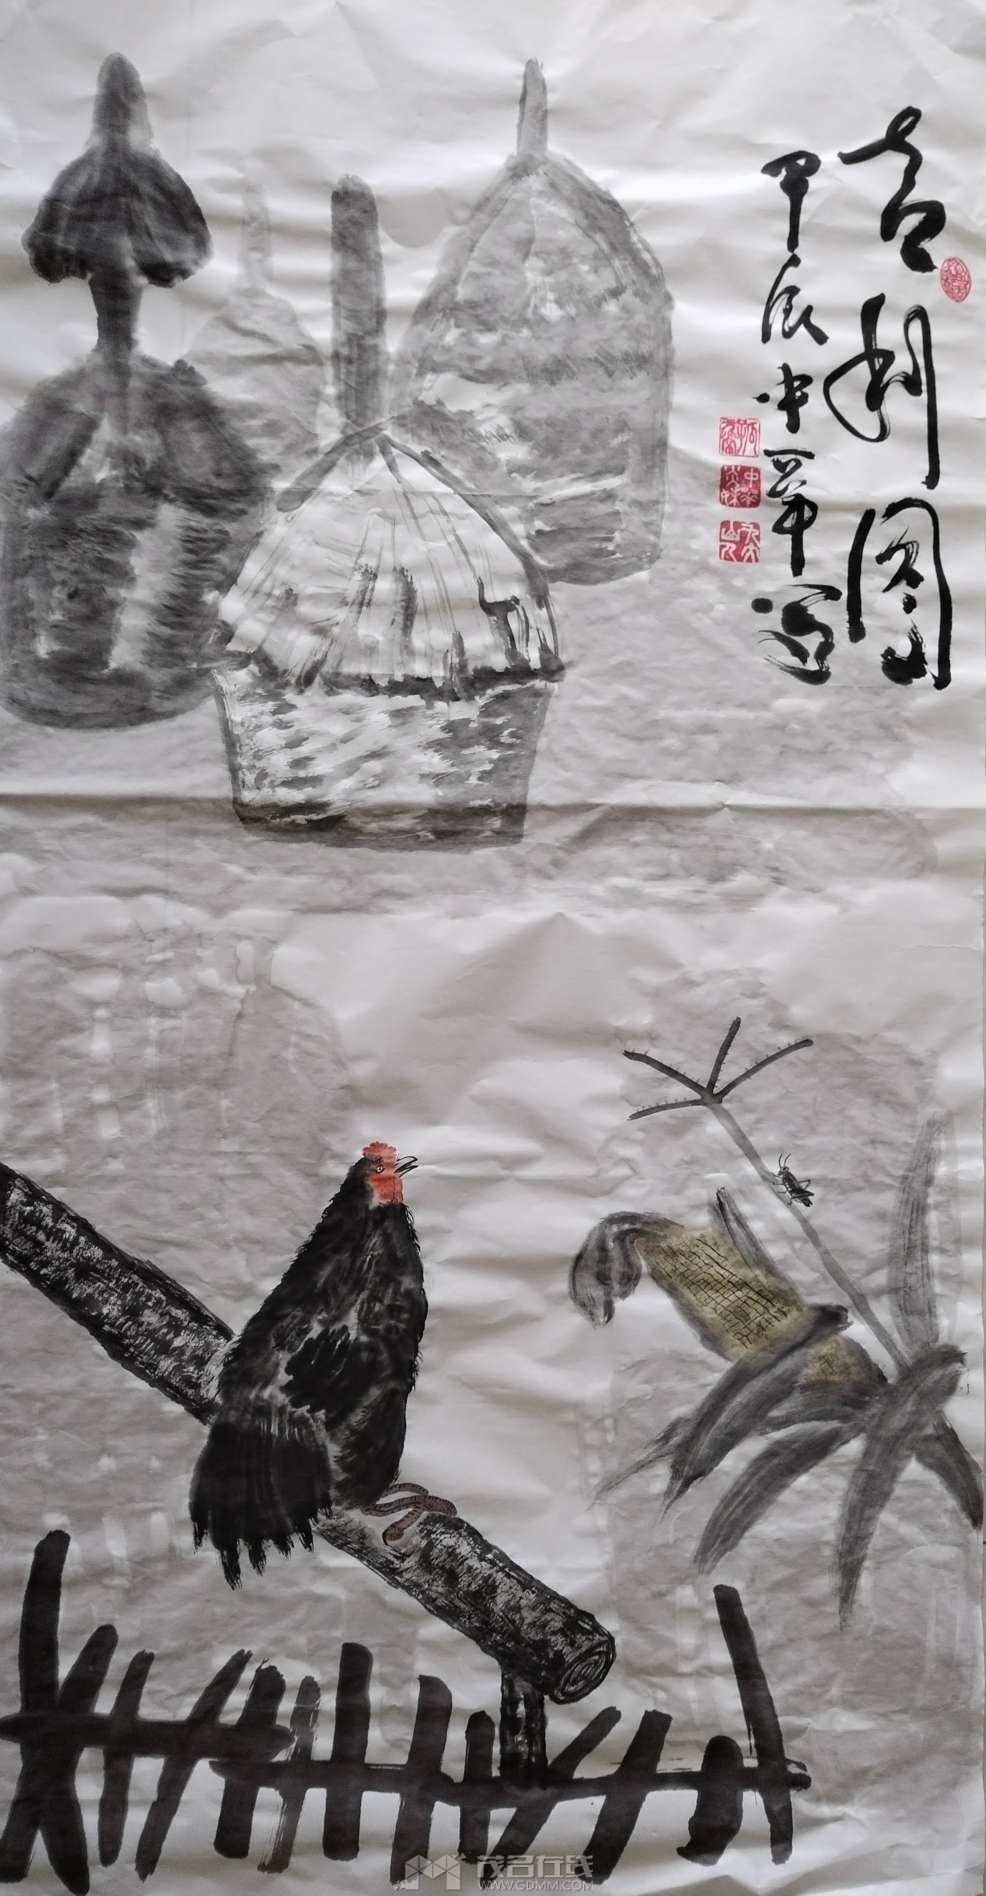 吉利图
甲辰中华写
茂名在线
WWW.GDMM.COM